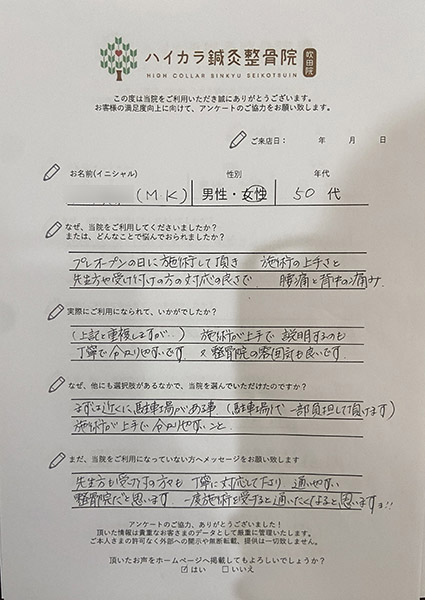 ハイカラ鍼灸整骨院 吹田院
HIGH COLLAR SINKYU SEIKOTSUIN
この度は当院をご利用いただき誠にありがとうございます。
お客様の満足度向上に向けて、アンケートのご協力をお願い致します。
ご来店日： 年 月 日
お名前(イニシャル) 性別 年代
(M.K) 男性・女性 50 代
なぜ、当院をご利用してくださいましたか？
または、どんなことで悩んでおられましたか？
プレオープンの日に施術して頂き 施術の上手さと
先生方や受け付けの方の対応の良さで 腰痛と背中の痛み.
実際にご利用になられて、いかがでしたか？
(上記と重複しますが…) 施術が上手で 説明するのも
丁寧で分かりやすいです 又 整骨院の雰囲気も良いです
なぜ、他にも選択肢があるなかで、当院を選んでいただけたのですか？
まずは近くに、駐車場がある事 (駐車場代 一部負担して頂けます)
施術が上手で 分かりやすいこと.
まだ、当院をご利用になっていない方へメッセージをお願い致します
先生方も受付の方々も 丁寧に対応して下さり 通いやすい
整骨院だと思います. 一度施術を受けると通いたくなると思いますョ!!
アンケートのご協力、ありがとうございました！
頂いた情報は貴重なお客さまのデータとして厳重に管理いたします。
ご本人さまの許可なく外部への開示や無断転載、提供は一切致しません。
頂いたお声をホームページへ掲載してもよろしいでしょうか？
☑はい □いいえ